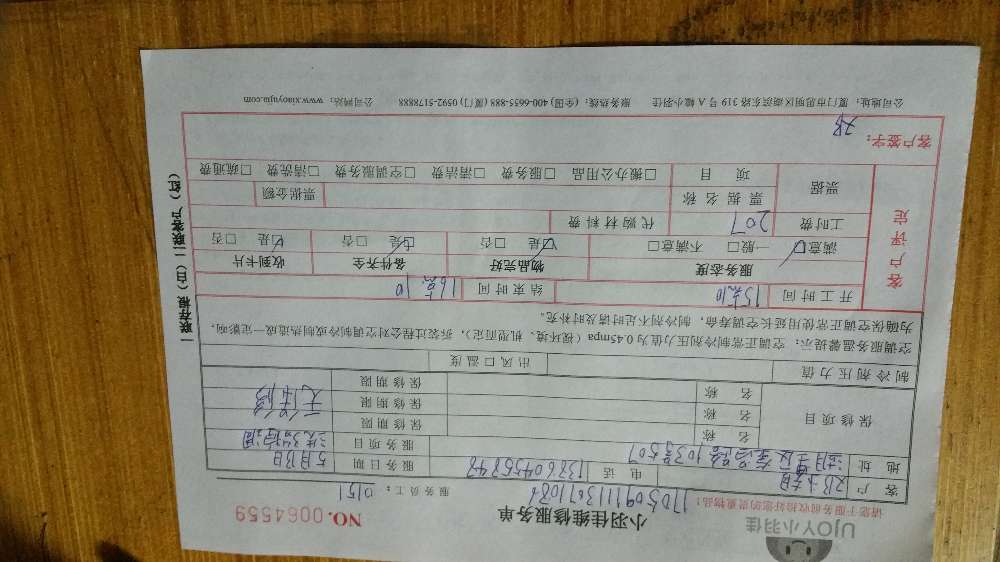 UJOY小羽佳
小羽佳维修服务单
NO. 0064559
请您于服务前收拾好您的贵重物品:
服务员工: 0151
客 户
电 话 13860455848
服务日期 5月13日
地 址
服务项目
保修项目
名 称
保修期限
名 称
保修期限 无保修
名 称
保修期限
制冷剂压力值
出风口温度
空调服务温馨提示:空调正常制冷剂压力值为0.45mpa(视环境、机型而定),拆装过程会对空调制冷或制热造成一定影响,
为确保空调正常使用延长空调寿命,制冷剂不足时请及时补充。
开工时间 15点10
结束时间 16点10
客户评定
服务态度
物品完好
备件齐全
收到卡片
满意☑ 一般□ 不满意□
☑是 □否
☑是 □否
☑是 □否
工时费 207
代购材料费
票据
票据名称
票据金额
项 目
□搬办公用品 □服务费 □清洁费 □空调服务费 □清洗费 □疏通费
客户签字:
公司地址:厦门市思明区湖滨东路319号A幢小羽佳 服务热线:(全国) 400-6655-888 (厦门) 0592-5178888 公司网站:www.xiaoyujia.com
一联存根(白)二联客户(红)